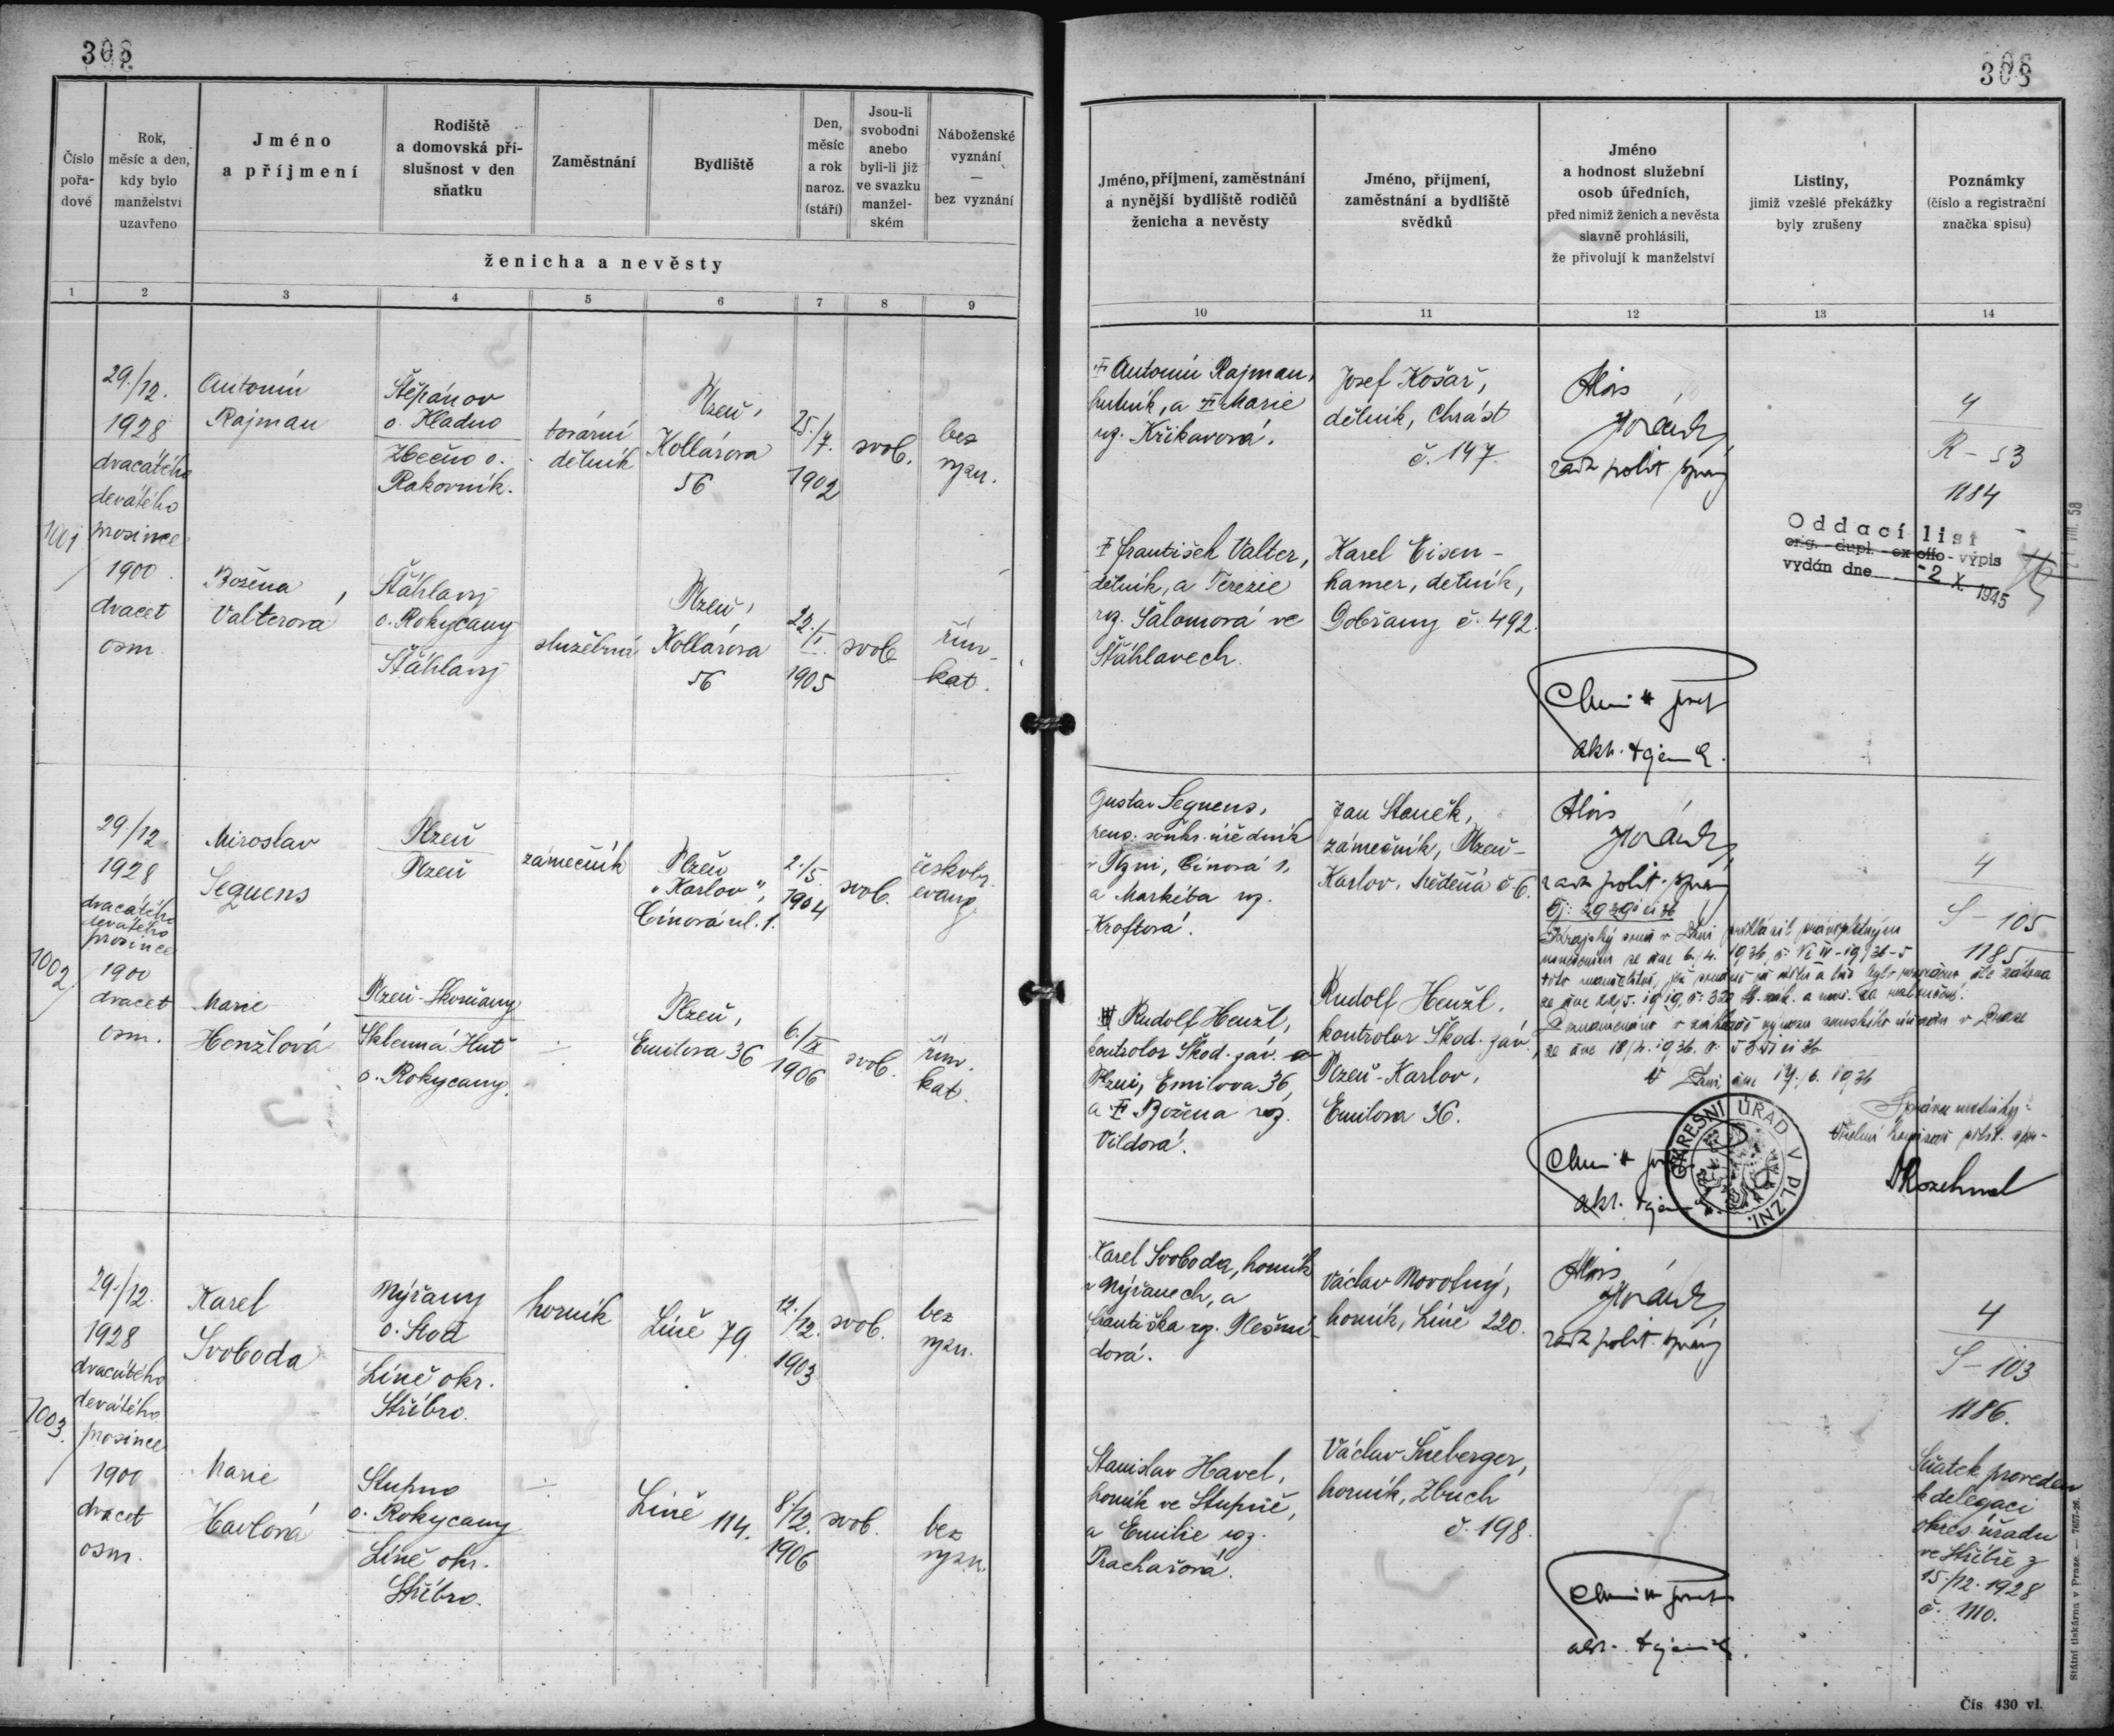 308
308
Číslo
pořa-
dové
Rok,
měsíc a den,
kdy bylo
manželství
uzavřeno
Jméno
a příjmení
Rodiště
a domovská pří-
slušnost v den
sňatku
Zaměstnání
Bydliště
Den,
měsíc
a rok
naroz.
(stáří)
Jsou-li
svobodni
anebo
byli-li již
ve svazku
manžel-
ském
Náboženské
vyznání
—
bez vyznání
ženicha a nevěsty
Jméno, příjmení, zaměstnání
a nynější bydliště rodičů
ženicha a nevěsty
Jméno, příjmení,
zaměstnání a bydliště
svědků
Jméno
a hodnost služební
osob úředních,
před nimiž ženich a nevěsta
slavně prohlásili,
že přivolují k manželství
Listiny,
jimiž vzešlé překážky
byly zrušeny
Poznámky
(číslo a registrační
značka spisu)
1 2 3 4 5 6 7 8 9 10 11 12 13 14
1001
29./12.
1928
dvacátého
devátého
prosince
1900
dvacet
osm
Antonín
Rajman
Štěpánov
o. Kladno
Zbečno o.
Rakovník.
tovární
dělník
Plzeň,
Kollárova
56
25./7.
1902
svob.
bez
vyzn.
† Antonín Rajman,
hutník, a † Marie
roz. Křikavová.
Josef Košař,
dělník, Chrást
č. 147.
Alois
Horák
rada polit. správy
4
R - 53
1184
Božena
Valterová
Štáhlavy
o. Rokycany
Štáhlavy
služebná
Plzeň,
Kollárova
56
22./I.
1905
svob.
řím.
kat.
† František Valter,
dělník, a Terezie
roz. Šalomová ve
Štáhlavech.
Karel Eisen-
hamer, dělník,
Dobřany č. 492.
Oddací list
orig. - dupl. - ex offo - výpis
vydán dne -2 X. 1945
akt. tajemník.
1002
29/12.
1928
dvacátého
devátého
prosince
1900
dvacet
osm.
Miroslav
Sequens
Plzeň
Plzeň
zámečník
Plzeň
"Karlov",
Cínová ul. 1.
2./5.
1904
svob.
českobr.
evang.
Gustav Sequens,
pens. soukr. úředník
v Plzni, Cínová 1,
a Markéta roz.
Kroftová.
Jan Staněk,
zámečník, Plzeň-
Karlov, Měděná č. 6.
Alois
Horák
rada polit. správy
4
S - 105
1185
Krajský soud v Plzni prohlásil
ze dne 6./4. 1936
ze dne 22/5. 1919, č. 320
ze dne 18/4. 1936.
V Plzni dne 17./6. 1936
Správce matriky:
Marie
Henžlová
Plzeň-Skvrňany
Sklenná Huť
o. Rokycany.
Plzeň,
Emilova 36
6./IX
1906
svob.
řím.
kat.
Rudolf Henžl,
kontrolor Škod. záv. v
Plzni, Emilova 36,
a † Božena roz.
Vildová.
Rudolf Henžl,
kontrolor Škod. záv.
Plzeň-Karlov,
Emilova 36.
OKRESNÍ ÚŘAD V PLZNI.
1003.
29./12.
1928
dvacátého
devátého
prosince
1900
dvacet
osm.
Karel
Svoboda
Nýřany
o. Stod
Líně okr.
Stříbro.
horník
Líně 79
12./12.
1903
svob.
bez
vyzn.
Karel Svoboda, horník
v Nýřanech, a
Františka roz. Plešmi-
dová.
Václav Novotný,
horník, Líně 220.
Alois
Horák
rada polit. správy
4
S - 103
1186.
Marie
Havlová
Stupno
o. Rokycany
Líně okr.
Stříbro.
Líně 114.
8./12.
1906
svob.
bez
vyzn.
Stanislav Havel,
horník ve Stupně,
a Emilie roz.
Prachařová.
Václav Šneberger,
horník, Zbuch
č. 198.
akt. tajemník.
Sňatek proveden
k delegaci
okres. úřadu
ve Stříbře z
15./12. 1928
č. 1110.
Státní tiskárna v Praze. — 7657-26.
Čís 430 vl.